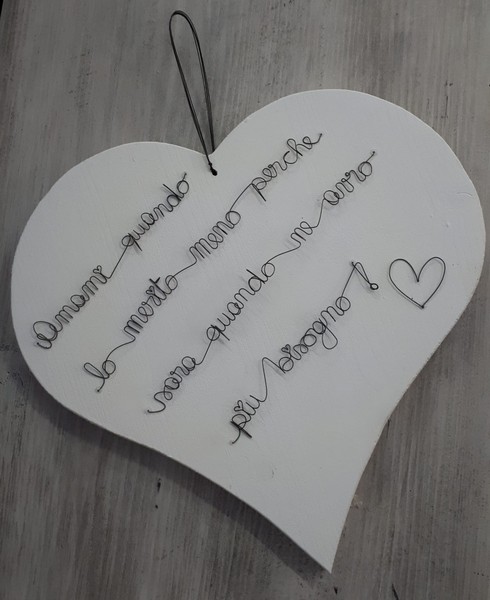 Amami quando
lo merito meno perche
sara quando ne avro
piu bisogno!